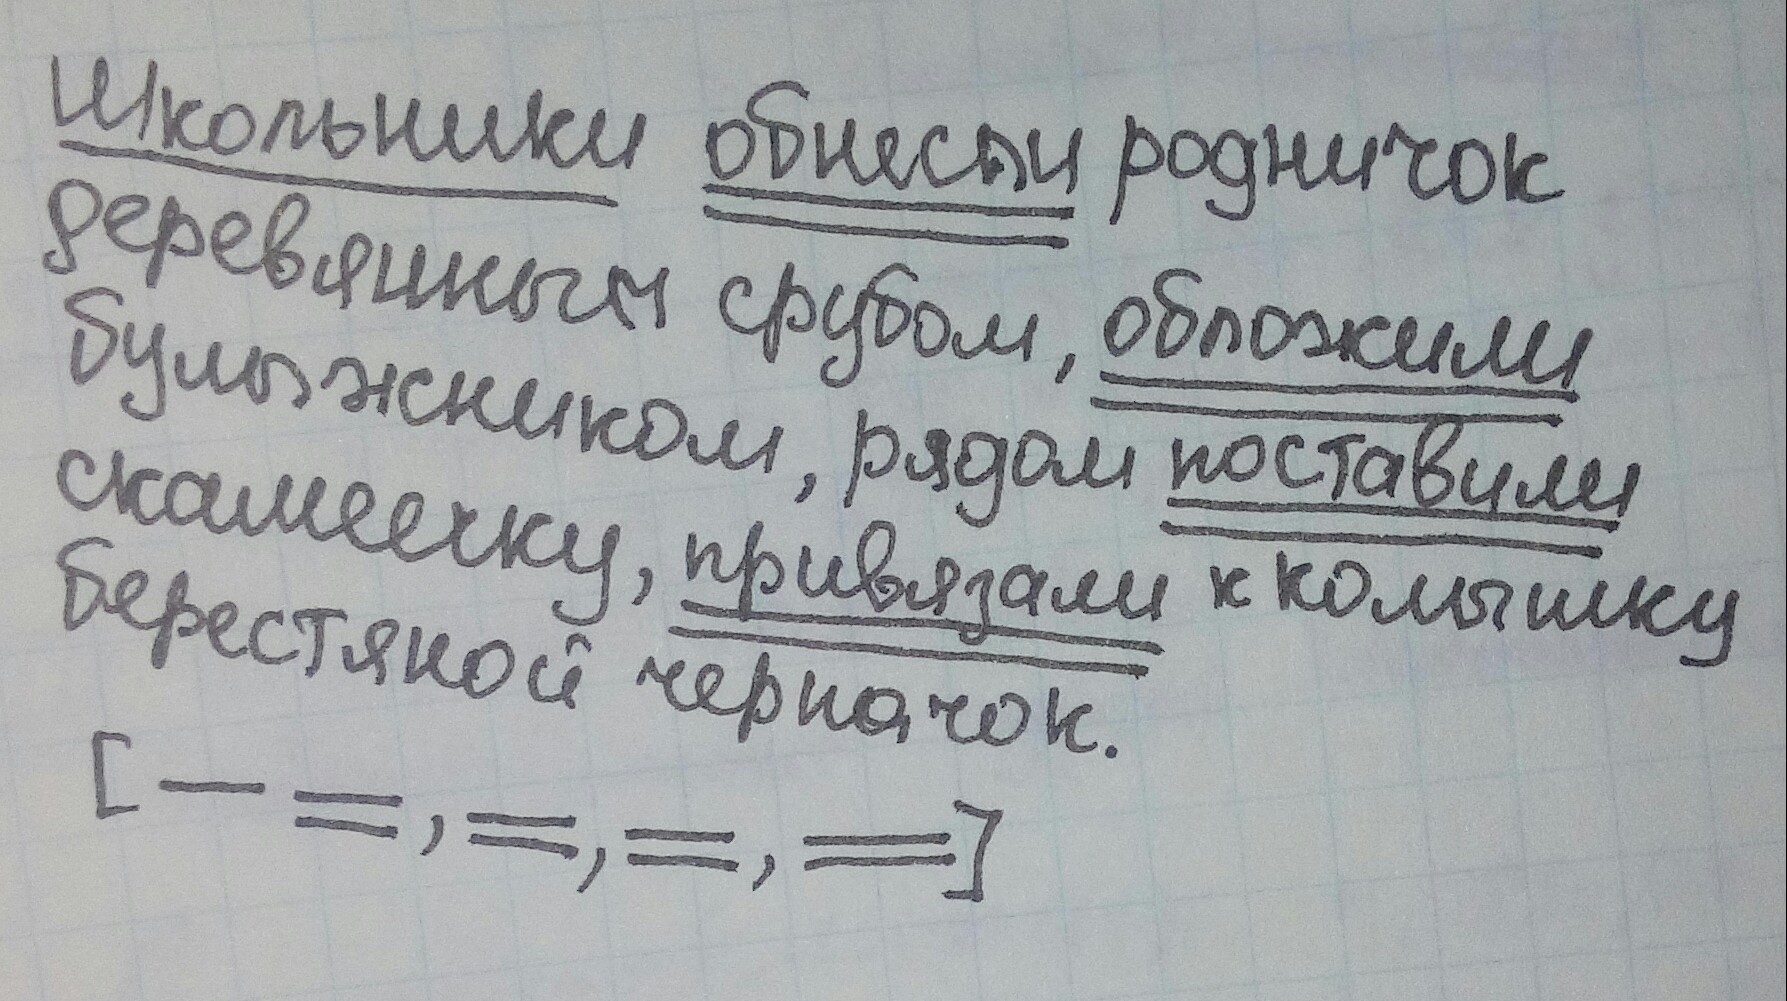 Школьники обнесли родничок
деревянным срубом, обложили
булыжником, рядом поставили
скамеечку, привязали к колышку
берестяной черпачок.
[— =, =, =, =]